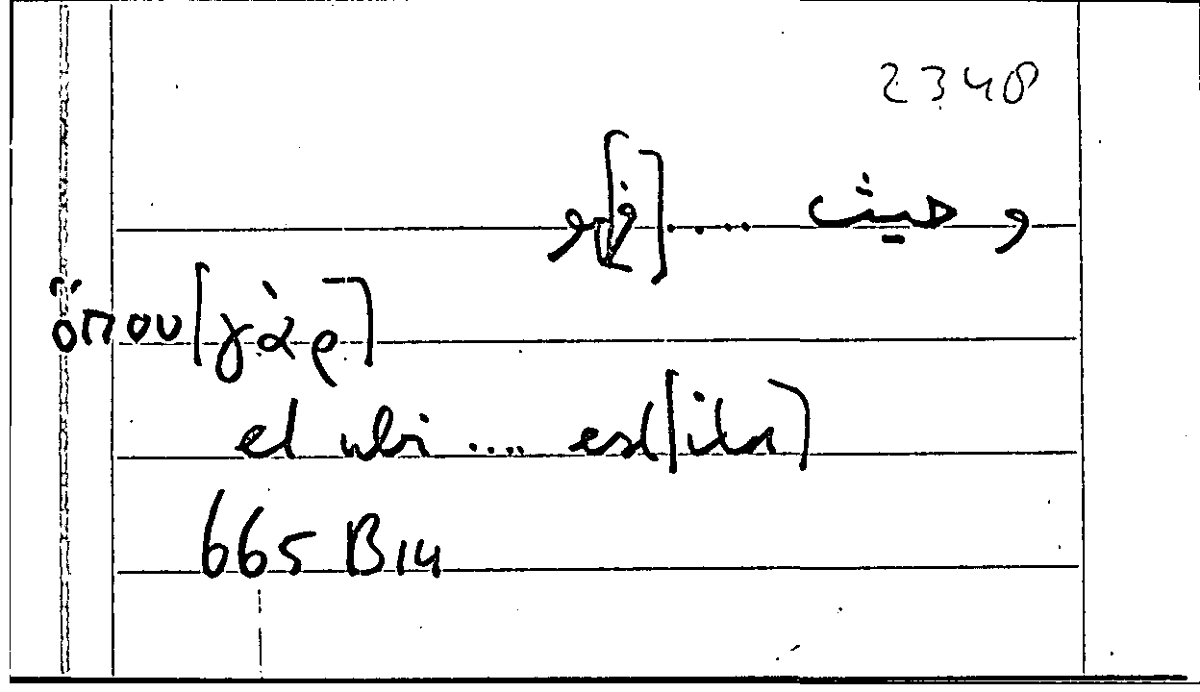 2348
و حيث .... [فـ]هو
ὅπου [γὰρ]
et ubi .... est [ita]
665 B 14